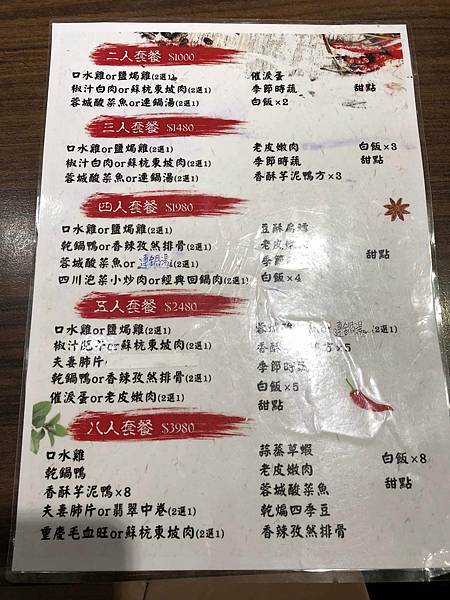 二人套餐 $1000
口水雞or鹽焗雞(2選1) 催淚蛋
椒汁白肉or蘇杭東坡肉(2選1) 季節時蔬 甜點
蓉城酸菜魚or連鍋湯(2選1) 白飯×2
三人套餐 $1480
口水雞or鹽焗雞(2選1) 老皮嫩肉 白飯×3
椒汁白肉or蘇杭東坡肉(2選1) 季節時蔬 甜點
蓉城酸菜魚or連鍋湯(2選1) 香酥芋泥鴨方×3
四人套餐 $1980
口水雞or鹽焗雞(2選1) 豆酥扁鱈
乾鍋鴨or香辣孜然排骨(2選1) 老皮
蓉城酸菜魚or連鍋湯(2選1) 季節 甜點
四川泡菜小炒肉or經典回鍋肉(2選1) 白飯×4
五人套餐 $2480
口水雞or鹽焗雞(2選1) or連鍋湯(2選1)
椒汁 or蘇杭東坡肉(2選1) 香酥 方×5
夫妻肺片 季節時蔬
乾鍋鴨or香辣孜然排骨(2選1) 白飯×5
催淚蛋or老皮嫩肉(2選1) 甜點
八人套餐 $3980
口水雞 蒜蒸草蝦 白飯×8
乾鍋鴨 老皮嫩肉
香酥芋泥鴨×8 蓉城酸菜魚 甜點
夫妻肺片or翡翠中卷(2選1) 乾煸四季豆
重慶毛血旺or蘇杭東坡肉(2選1) 香辣孜然排骨